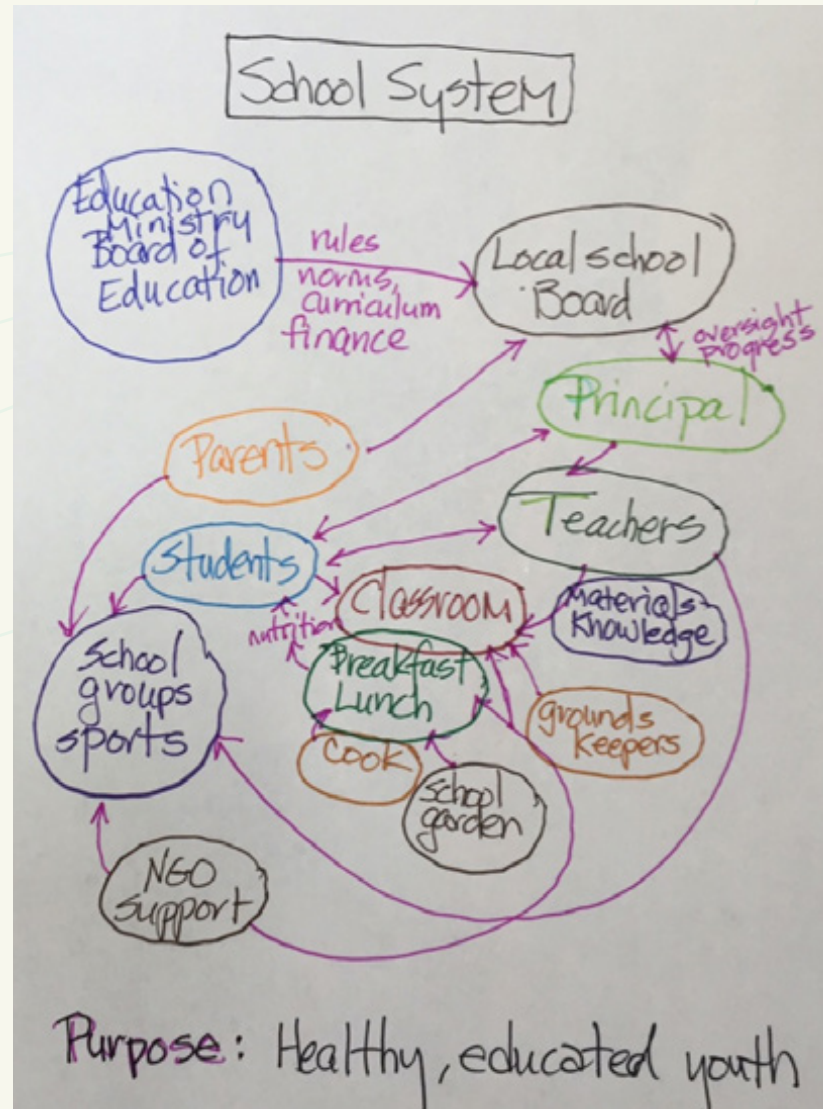 School System
Education
Ministry
Board of
Education
rules
norms,
curriculum
finance
Local school
Board
oversight
progress
Principal
Parents
Teachers
Students
Classroom
Materials-
Knowledge
nutrition
Breakfast
Lunch
School
groups
sports
grounds
keepers
Cook
school
garden
NGO
support
Purpose: Healthy, educated youth